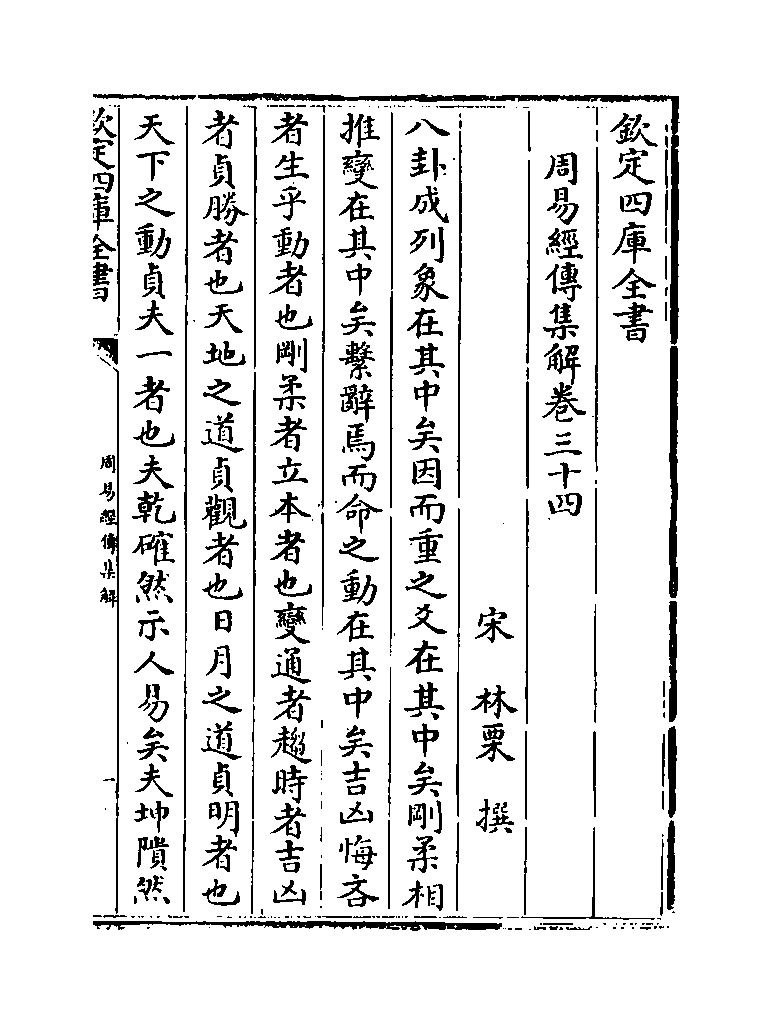 欽定四庫全書
周易經傳集解卷三十四
宋 林栗 撰
八卦成列象在其中矣因而重之爻在其中矣剛柔相
推變在其中矣繫辭焉而命之動在其中矣吉凶悔吝
者生乎動者也剛柔者立本者也變通者趨時者吉凶
者貞勝者也天地之道貞觀者也日月之道貞明者也
天下之動貞夫一者也夫乾確然示人易矣夫坤隤然
欽定四庫全書
周易經傳集解
一